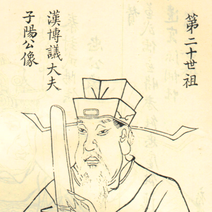 第二十世祖
漢博議大夫
子陽公像